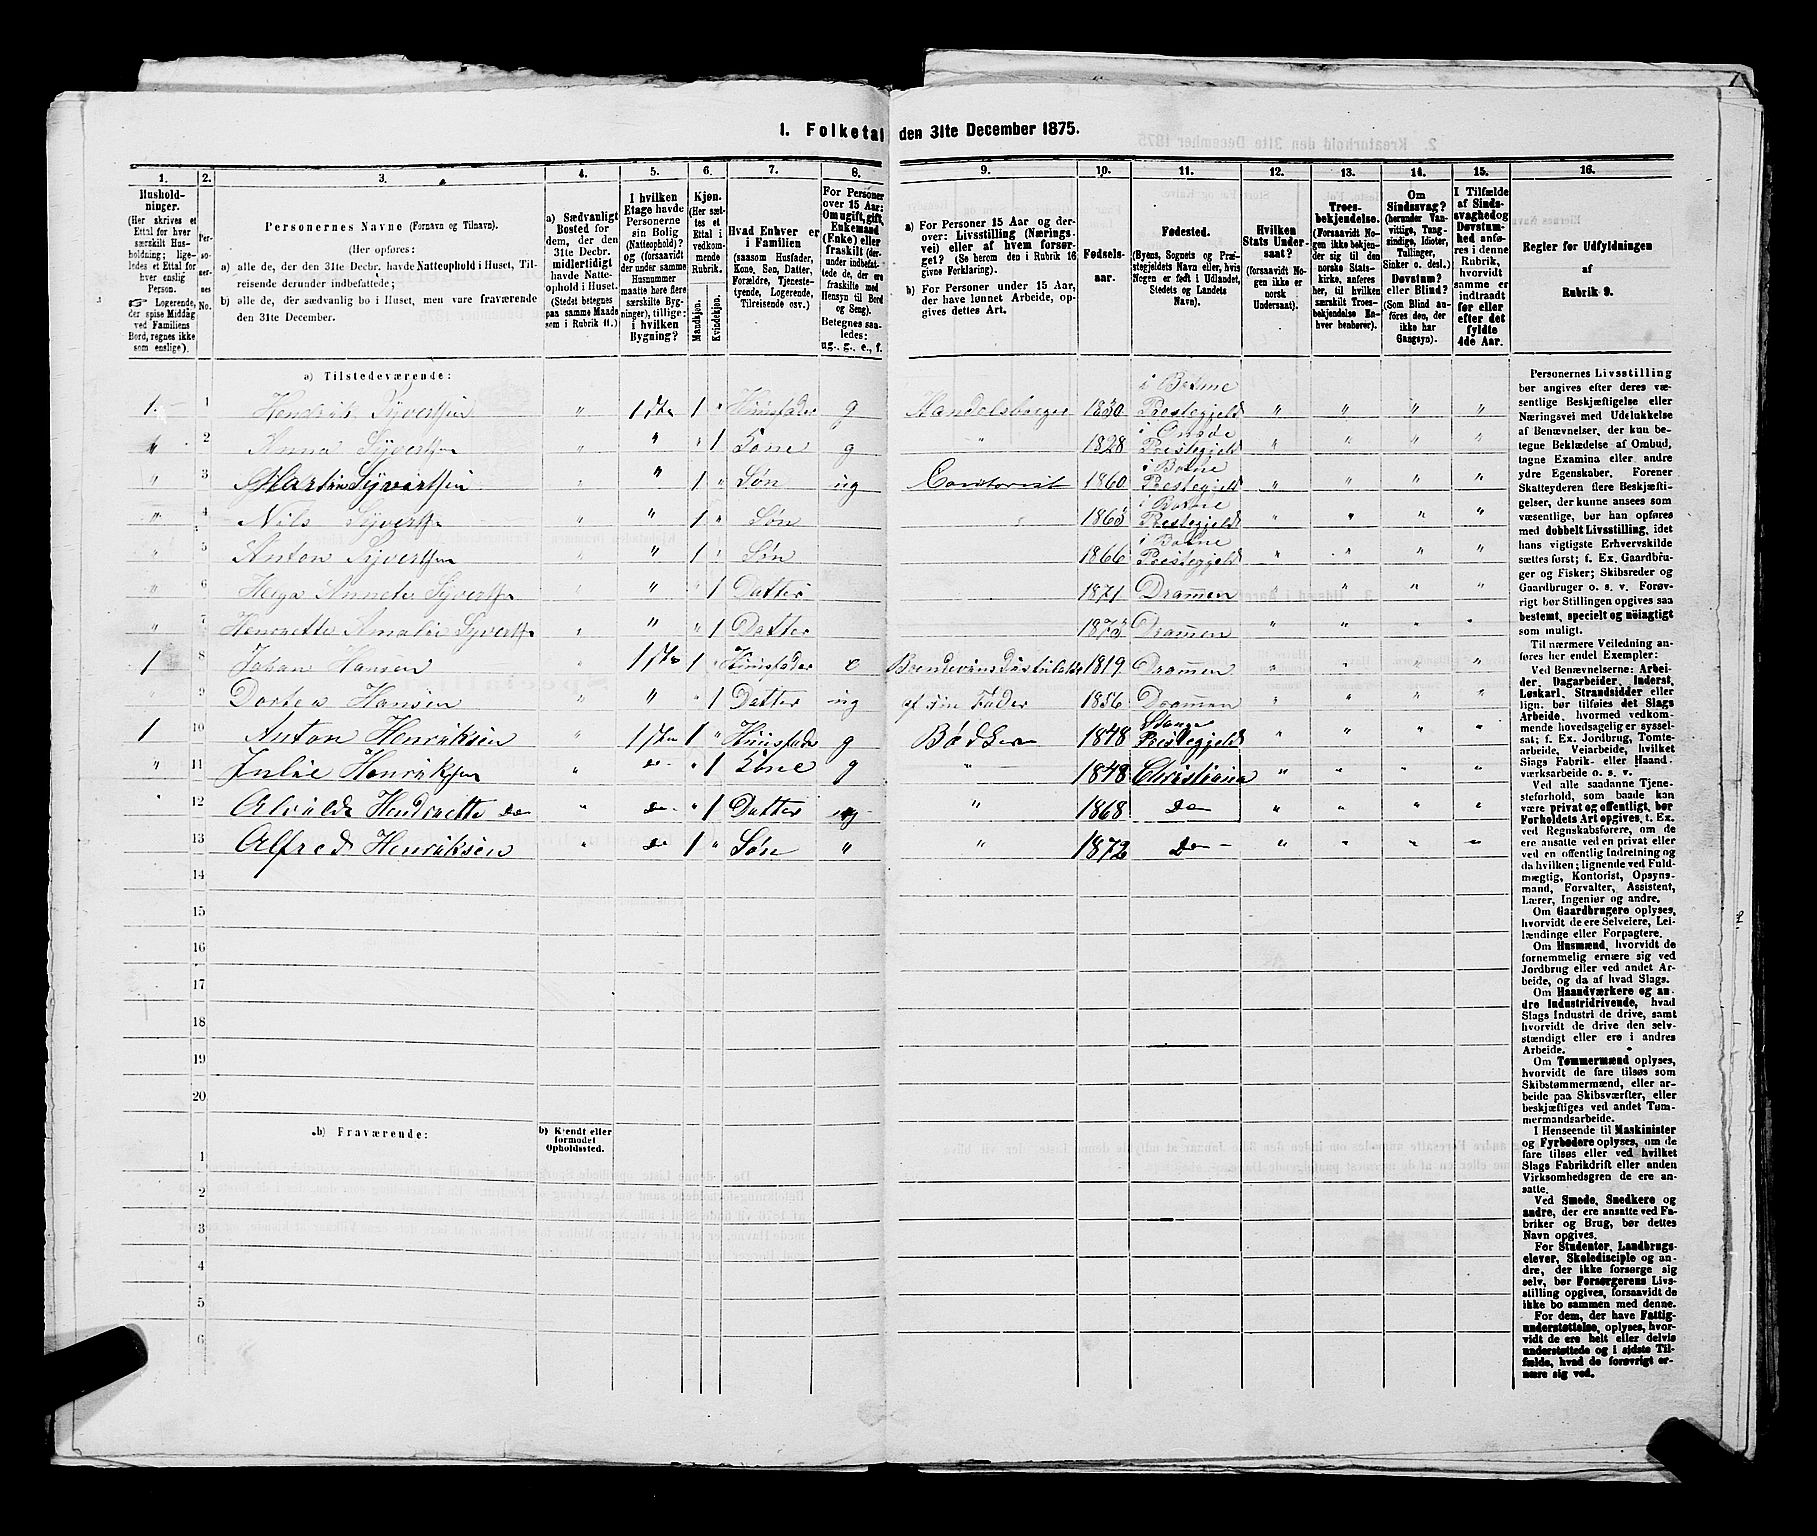 1. Folketal den 31te December 1875.
1. 2. 3. 4. 5. 6. 7. 8. 9. 10. 11. 12. 13. 14. 15. 16.
Hushold-
ninger.
(Her skrives et
Ettal for hver
særskilt Hus-
holdning; lige-
ledes et Ettal for
hver enslig
Person.
☞ Logerende,
der spise Middag
ved Familiens
Bord, regnes ikke
som enslige).
Per-
so-
ner-
nes
No.
Personernes Navne (Fornavn og Tilnavn).
(Her opføres:
a) alle de, der den 31te Decbr. havde Natteophold i Huset, Til-
reisende derunder indbefattede;
b) alle de, der sædvanlig bo i Huset, men vare fraværende
den 31te December.
a) Sædvanligt
Bosted for
dem, der den
31te Decbr.
midlertidigt
havde Natte-
ophold i Huset.
(Stedet betegnes
paa samme Maade
som i Rubrik 11.)
I hvilken
Etage havde
Personerne
sin Bolig
(Natteophold)?
og (forsaavidt
der under samme
Husnummer
maatte høre flere
særskilte Byg-
ninger), tillige:
i hvilken
Bygning?
Kjøn.
(Her sæt-
tes et
Ettal i
vedkom-
mende
Rubrik.
Mandkjøn.
Kvindekjøn.
Hvad Enhver er
i Familien
(saasom Husfader,
Kone, Søn, Datter,
Forældre, Tjeneste-
tyende, Logerende,
Tilreisende osv.)
For Personer
over 15 Aar:
Om ugift, gift,
Enkemand
(Enke) eller
fraskilt (der-
under indbefat-
tede de, der ere
fraskilte med
Hensyn til Bord
og Seng).
Betegnes saa-
ledes:
ug., g., e., f.
a) For Personer 15 Aar og der-
over: Livsstilling (Nærings-
vei) eller af hvem forsør-
get? (Se herom den i Rubrik 16
givne Forklaring).
b) For Personer under 15 Aar,
der have lønnet Arbeide, op-
gives dettes Art.
Fødsels-
aar.
Fødested.
(Byens, Sognets og Præ-
stegjeldets Navn eller, hvis
Nogen er født i Udlandet,
Stedets og Landets
Navn).
Hvilken
Stats Under-
saat?
(forsaavidt No-
gen ikke er
norsk
Undersaat).
Troes-
bekjendelse.
(Forsaavidt No-
gen ikke bekjen-
der sig til den
norske Stats-
kirke, anføres
her, til hvilken
særskilt Troes-
bekjendelse En-
hver henhører).
Om
Sindssvag?
(herunder Van-
vittige, Tung-
sindige, Idioter,
Tullinger,
Sinker o. desl.)
Døvstum?
eller Blind?
(Som Blind an-
føres den, der
ikke har
Gangsyn).
I Tilfælde
af Sinds-
svaghed og
Døvstum-
hed anfø-
res i denne
Rubrik,
hvorvidt
samme er
indtraadt
før eller
efter det
fyldte
4de Aar.
Regler for Udfyldningen
af
Rubrik 9.
a) Tilstedeværende:
1 1 Hendrik Syvertsen " 1 Ste 1 " Huusfader g Handelsborger 1830 i Botne Prestegjeld " " " "
" 2 Anna Syvertsen " " " 1 Kone g " 1828 i Prestegjeld " " " "
" 3 Martin Syvertsen " " 1 " Søn ug Contorist 1860 i Botne Prestegjeld " " " "
" 4 Nils Syvertsen " " 1 " Søn 1863 i Botne Prestegjeld " " " "
" 5 Anton Syvertsen " " 1 " Søn 1866 i Botne Prestegjeld " " " "
" 6 Helga Annete Syvertsen " " " 1 Datter 1871 Dramen " " " "
" 7 Henriette Amalie Syvertsen " " " 1 Datter 1873 Dramen " " " "
1 8 Johan Hansen " 1 Ste 1 " Huusfader e 1819 Dramen " " " "
9 Dortea Hansen " " " 1 Datter ug af sin Fader 1856 Dramen " " " "
1 10 Anton Henriksen " 1 Ste 1 " Huusfader g Bødker 1848 Stange Prestegjeld " " " "
" 11 Julie Henriksen " do " 1 Kone g " 1848 Christiania " " " "
" 12 Alvilde Hendriette do " do " 1 Datter ug " 1868 Do " " " "
13 Alfred Henriksen " do 1 " Søn " " 1872 Do " " " "
14
15
16
17
18
19
20
b) Fraværende:
b) Kjendt eller
formodet
Opholdssted.
1
2
3
4
5
6
Personernes Livsstilling
bør angives efter deres væ-
sentlige Beskjæftigelse eller
Næringsvei med Udelukkelse
af Benævnelser, der kun be-
tegne Beklædelse af Ombud,
tagne Examina eller andre
ydre Egenskaber. Forener
Skatteyderen flere Beskjæfti-
gelser, der kunne ansees som
væsentlige, bør han opføres
med dobbelt Livsstilling, idet
hans vigtigste Erhvervskilde
sættes først; f. Ex. Gaardbru-
ger og Fisker; Skibsreder og
Gaardbruger o. s. v. Forøv-
rigt bør Stillingen opgives saa
bestemt, specielt og nøiagtigt
som muligt.
Til nærmere Veiledning an-
føres her endel Exempler:
Ved Benævnelserne: Arbei-
der, Dagarbeider, Inderst,
Løskarl, Strandsidder eller
lign. bør tilføies det Slags
Arbeide, hvormed vedkom-
mende hovedsagelig er syssel-
sat; f. Ex. Jordbrug, Tomte-
arbeide, Veiarbeide, hvilket
Slags Fabrik- eller Haand-
værksarbeide o. s. v.
Ved alle saadanne Tjene-
steforhold, som baade kan
være privat og offentligt, bør
Forholdets Art opgives, t. Ex.
ved Regnskabsførere, om de
ere ansatte ved en privat eller
ved en offentlig Indretning og
da hvilken; lignende ved Fuld-
mægtig, Kontorist, Opsyns-
mand, Forvalter, Assistent,
Lærer, Ingeniør og andre.
Om Gaardbrugere oplyses,
hvorvidt de ere Selveiere, Lei-
lændinge eller Forpagtere.
Om Husmænd, hvorvidt de
fornemmelig ernære sig ved
Jordbrug eller ved andet Ar-
beide, og da af hvad Slags.
Om Haandværkere og an-
dre Industridrivende, hvad
Slags Industri de drive, samt
hvorvidt de drive den selv-
stændigt eller ere i andres
Arbeide.
Om Tømmermænd oplyses,
hvorvidt de fare tilsøs som
Skibstømmermænd, eller ar-
beide paa Skibsværfter, eller
beskjæftiges ved andet Tøm-
mermandsarbeide.
I Henseende til Maskinister
og Fyrbødere oplyses, om de
fare tilsøs eller ved hvilket
Slags Fabrikdrift eller anden
Virksomhedsgren de ere an-
satte.
Ved Smede, Snedkere og
andre, der ere ansatte ved Fa-
briker og Brug, bør dettes
Navn opgives.
For Studenter, Landbrugs-
elever, Skoledisciple og an-
dre, der ikke forsørge sig
selv, bør Forsørgerens Livs-
stilling opgives, forsaavidt de
ikke bo sammen med denne.
For dem, der have Fattig-
understøttelse, oplyses, hvor-
vidt de ere helt eller delvis
understøttede og i sidste Til-
fælde, hvad de forøvrigt er-
nære sig ved.